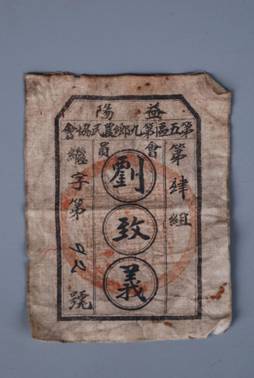 益陽
第五區第九鄉農民協會
第肆組
會員
劉致義
繼字第
號